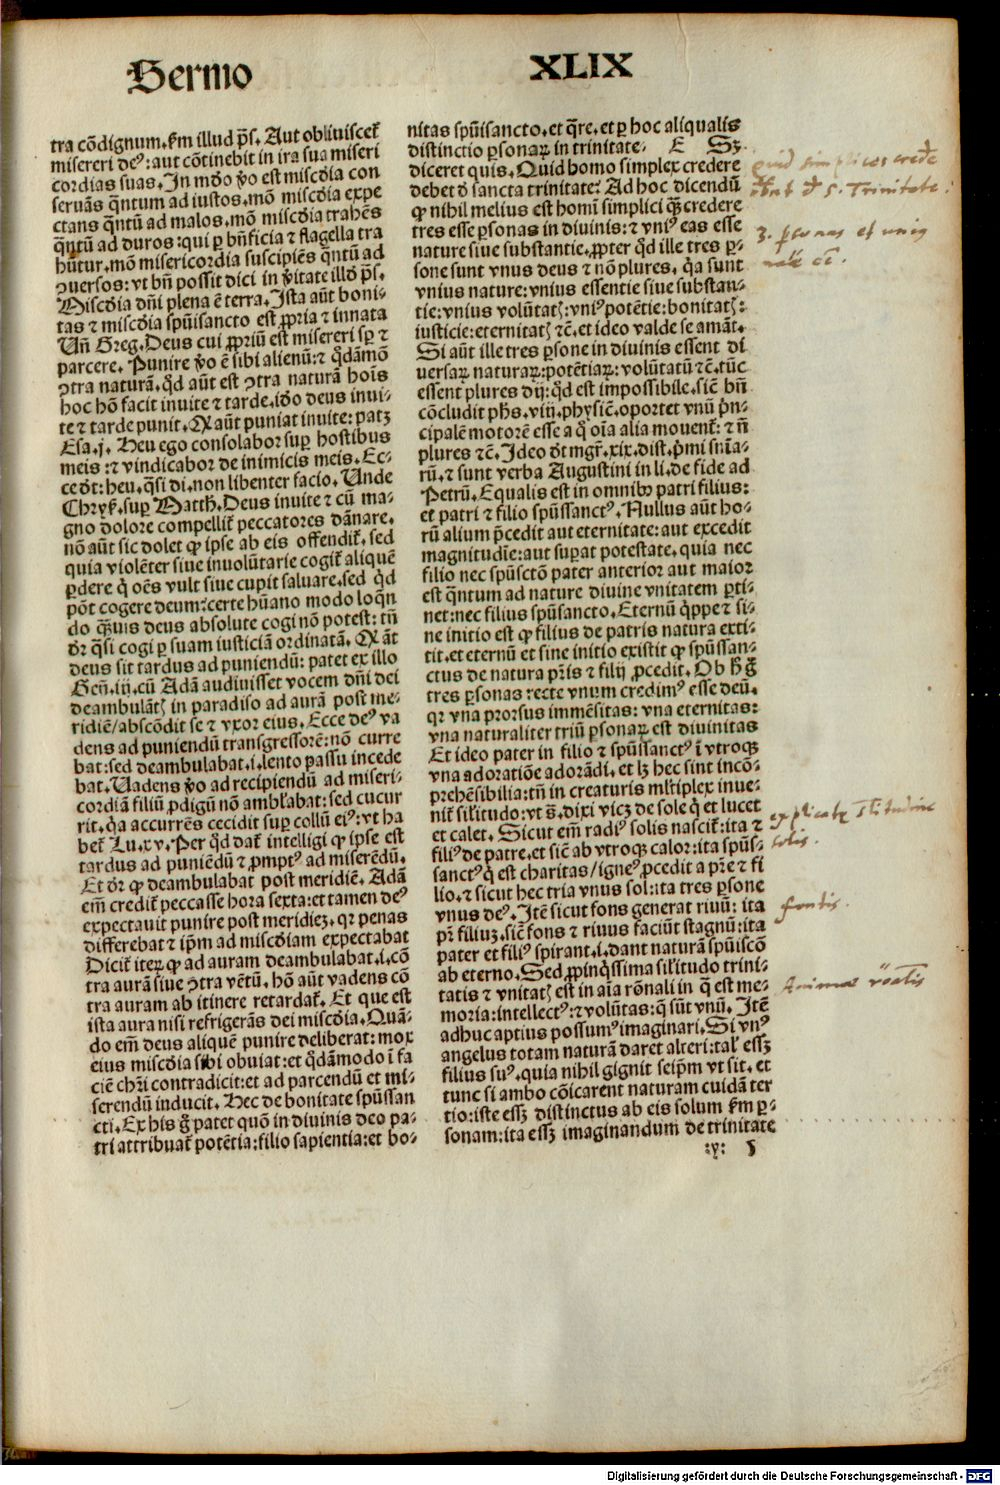 Sermo XLIX
tra cōdignum. ẜm illud p̄s. Aut obliuiscet̃
misereri deꝰ: aut cōtinebit in ira sua miseri
cordias suas. In mō ꝟo est miscďia con
seruās q̄ntum ad iustos. mō miscďia expe
ctans q̄ntū ad malos. mō miscďia trahēs
q̄ntū ad duros: qui ꝑ bn̄ficia ⁊ flagella tra
hūtur. mō misericordia suscipiēs q̄ntū ad
ꝯuersos: vt bn̄ possit dici in ꝟitate illď p̄s.
Miscďia dn̄i plena ē terra. Ista aūt boni⸗
tas ⁊ miscďia spūsancto est ꝓpria ⁊ innata
Un̄ Greg. Deus cui ꝓpriū est misereri sꝑ ⁊
parcere. Punire ꝟo ē sibi alienū: ⁊ q̇dāmō
ꝯtra naturā. q̇d aūt est ꝯtra naturā hoīs
hoc hō facit inuite ⁊ tarde. iďo deus inui⸗
te ⁊ tarde punit. Q aūt puniat inuite: patꝫ
Esa. j. Heu ego consolabor suꝑ hostibus
meis: ⁊ vindicabor de inimicis meis. Ec⸗
ce ďt: heu. q̄si di. non libenter facio. Unde
Chryẜ. suꝑ Matth. Deus inuite ⁊ cū ma⸗
gno dolore compellit̃ peccatores dānare.
nō aūt sic dolet ꝙ ipse ab eis offendit̃. sed
quia violēter siue inuolūtarie cogit̃ aliquē
ꝑdere q̇ oēs vult siue cupit saluare. sed q̇d
pōt cogere deum: certe hūano modo loqn̄
do q̄uis deus absolute cogi nō potest: tn̄
ďr q̄si cogi ꝑ suam iusticiā ordinatā. Q āt
deus sit tardus ad puniendū: patet ex illo
Gen̄. iij. cū Adā audiuisset vocem dn̄i dei
deambulātꝭ in paradiso ad aurā post me⸗
ridiē/abscōdit se ⁊ vxor eius. Ecce deꝰ va
dens ad puniendū transgressorē: nō curre
bat: sed deambulabat. i. lento passu incede
bat. Uadens ꝟo ad recipiendū ad miseri⸗
cordiā filiū ꝓdigū nō amblabat: sed cucur
rit. q̇a accurrēs cecidit suꝑ collū eiꝰ: vt ha
bet̃ Lu. xv. Per q̇d dat̃ intelligi ꝙ ipse est
tardus ad puniēdū ⁊ ꝓmptꝰ ad miserēdū.
Et ďr ꝙ deambulabat post meridiē. Adā
em̄ credit̃ peccasse hora sexta: et tamen deꝰ
expectauit punire post meridiez. qꝛ penas
differebat ⁊ ip̄m ad miscďiam expectabat
Dicit̃ iteꝝ ꝙ ad auram deambulabat. i. cō
tra aurā siue ꝯtra vētū. hō aūt vadens cō
tra auram ab itinere retardat̃. Et que est
ista aura nisi refrigerās dei miscďia. Quā⸗
do em̄ deus aliquē punire deliberat: mox
eius miscďia sibi obuiat: et q̇dāmodo ī fa
ciē ch̄ri contradicit: et ad parcendū et mi⸗
serendū inducit. Hec de bonitate spūssan
cti. Ex his ḡ patet quō in diuinis deo pa⸗
tri attribuat̃ potētia: filio sapientia: et bo⸗
nitas spūisancto. et q̄re. et ꝑ hoc aliqualis
distinctio ꝑsonaꝝ in trinitate. E Sꝫ
diceret quis. Quid homo simplex credere
debet ď sancta trinitate? Ad hoc dicendū
ꝙ nihil melius est homī simplici q̄ꝫ credere
tres esse ꝑsonas in diuinis: ⁊ vniꝰ eas esse
nature siue substantie. ꝓpter q̇d ille tres ꝑ⸗
sone sunt vnus deus ⁊ nō plures. q̇a sunt
vnius nature: vnius essentie siue substan⸗
tie: vnius volūtatꝭ: vniꝰ potētie: bonitatꝭ:
iusticie: eternitatꝭ ⁊c̄. et ideo valde se amāt.
Si aūt ille tres ꝑsone in diuinis essent di
uersaꝝ naturaꝝ: potētiaꝝ: volūtatū ⁊c̄. tūc
essent plures dij: q̇d est impossibile. sic̄ bn̄
cōcludit ph̄s. viij. physic̄. oportet vnū p̄n⸗
cipalē motorē esse a q̇ oīa alia mouent̃: ⁊ n̄
plures ⁊c̄. Ideo ďt mgr̄. xix. dist. p̄mi sn̄ia⸗
rū. ⁊ sunt verba Augustini in li. de fide ad
Petrū. Equalis est in omnibꝰ patri filius:
et patri ⁊ filio spūssanctꝰ. Nullus aūt ho⸗
rū alium p̄cedit aut eternitate: aut excedit
magnitudīe: aut suꝑat potestate. quia nec
filio nec spūsctō pater anterior aut maior
est q̄ntum ad nature diuine vnitatem ꝑti⸗
net: nec filius spūsancto. Eternū q̇ppe ⁊ si⸗
ne initio est ꝙ filius de patris natura exti⸗
tit. et eternū et sine initio existit ꝙ spūssan⸗
ctus de natura pr̄is ⁊ filij ꝓcedit. Ob h̄ ḡ
tres ꝑsonas recte vnum credimꝰ esse deū.
qꝛ vna prorsus immēsitas: vna eternitas:
vna naturaliter triū ꝑsonaꝝ est diuinitas
Et ideo pater in filio ⁊ spūssanctꝰ ī vtroqꝫ
vna adoratiōe adorādi. et lꝫ hec sint incō⸗
prehēsibilia: tn̄ in creaturis mltiplex inue⸗
nit̃ silitudo: vt s̄. dixi vicꝫ de sole q̇ et lucet
et calet. Sicut em̄ radiꝰ solis nascit̃: ita ⁊
filiꝰ de patre. et sic̄ ab vtroqꝫ calor: ita spūs⸗
sanctꝰ q̇ est charitas/igneꝰ ꝓcedit a pr̄e ⁊ fi
lio. ⁊ sicut hec tria vnus sol: ita tres ꝑsone
vnus deꝰ. Itē sicut fons generat riuū: ita
pr̄ filiuꝫ. sic̄ fons ⁊ riuus faciūt stagnū: ita
pater et filiꝰ spirant. i. dant naturā spūiscō
ab eterno. Sed ꝓpinq̇ssima silitudo trini⸗
tatis ⁊ vnitatꝭ est in aīa rōnali in q̄ est me⸗
moria: intellectꝰ: ⁊ volūtas: q̄ sūt vnū. Itē
adhuc aptius possumꝰ imaginari. Si vnꝰ
angelus totam naturā daret alteri: tal̓ essꝫ
filius suꝰ. quia nihil gignit seip̄m vt sit. et
tunc si ambo cōicarent naturam cuidā ter
tio: iste essꝫ distinctus ab eis solum ẜm ꝑ⸗
sonam: ita essꝫ imaginandum de trinitate
:y: 5
quid simplices crede
s. Trinitate.
3. personas et unius
explicatꝛ silitudine
solis.
fontis.
Animae rōalis
Digitalisierung gefördert durch die Deutsche Forschungsgemeinschaft - DFG